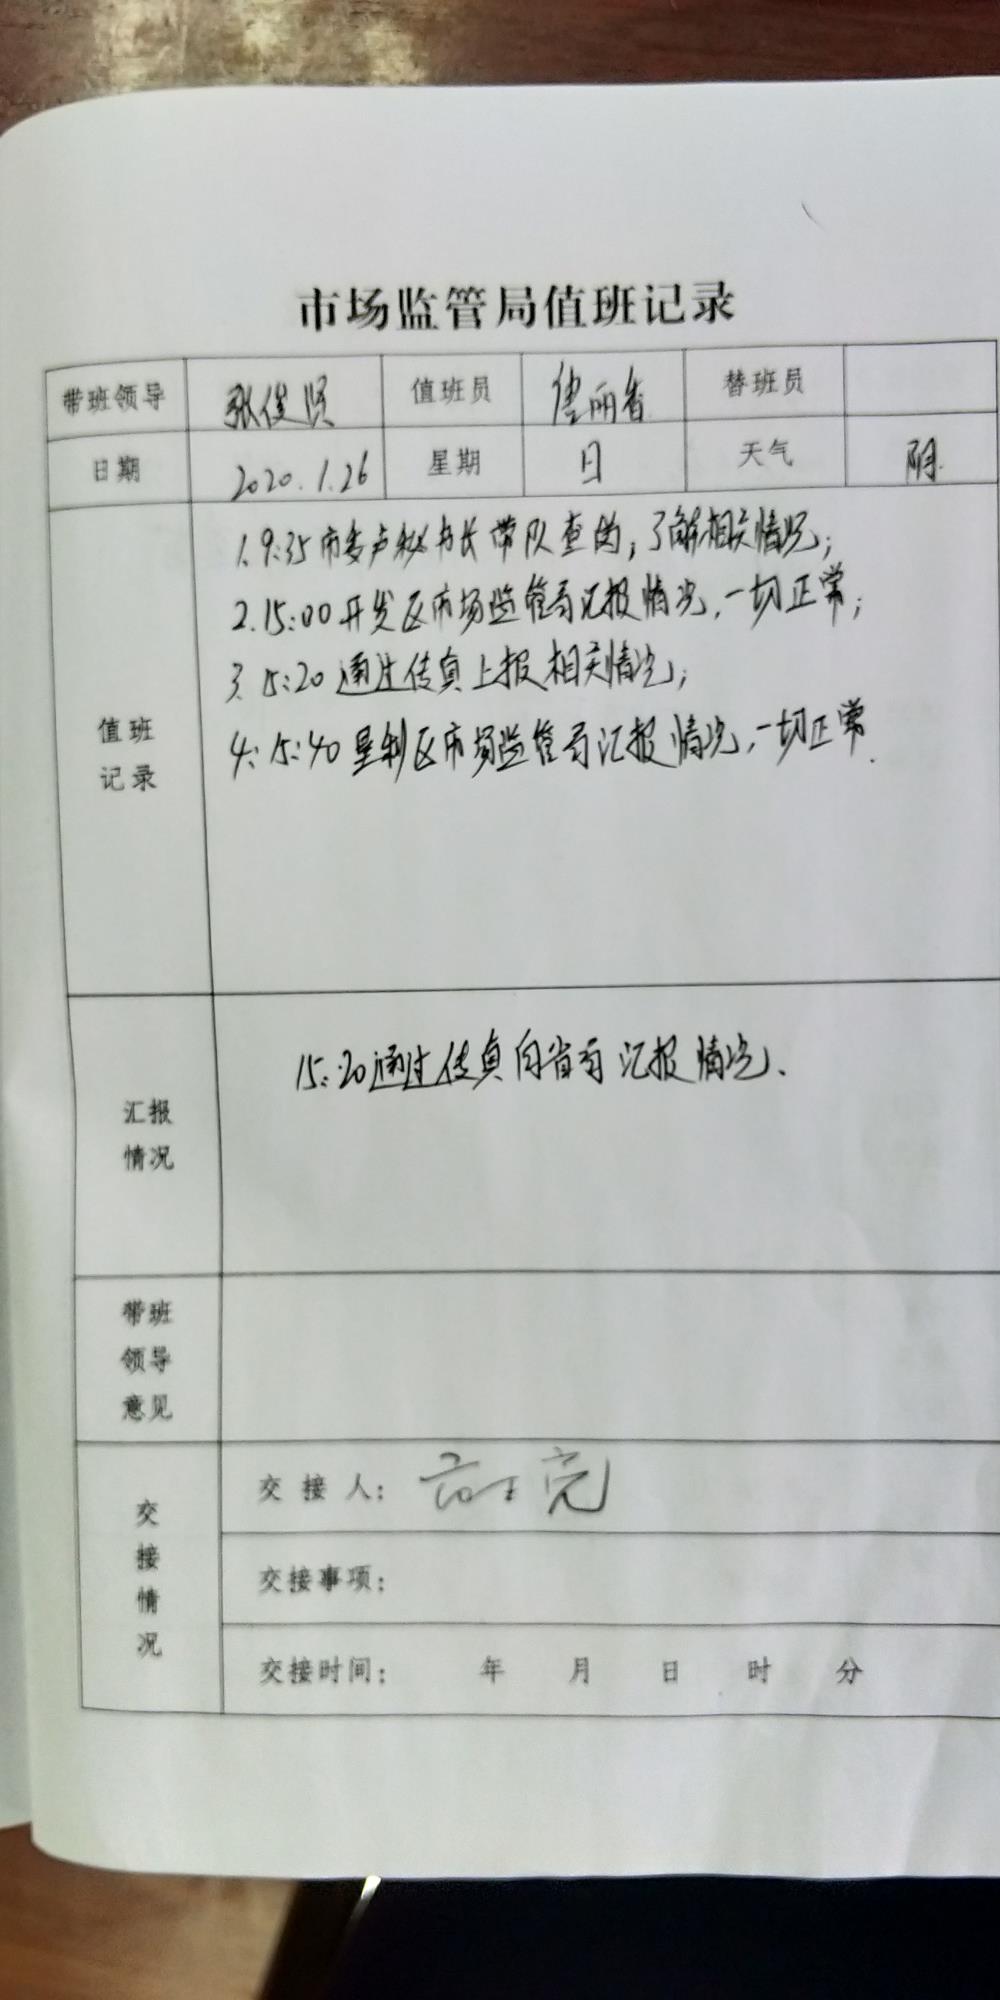 市场监管局值班记录
带班领导 张俊贤 值班员 唐丽香 替班员
日期 2020.1.26 星期 日 天气 阴
值班记录
1.9:35市委卢秘书长带队查岗,了解相关情况;
2.15:00开发区市场监管局汇报情况,一切正常;
3.15:20通过传真上报相关情况;
4.15:40垦利区市场监管局汇报情况,一切正常.
汇报情况
15:20通过传真向省局汇报情况.
带班领导意见
交接情况
交接人:
交接事项:
交接时间: 年 月 日 时 分